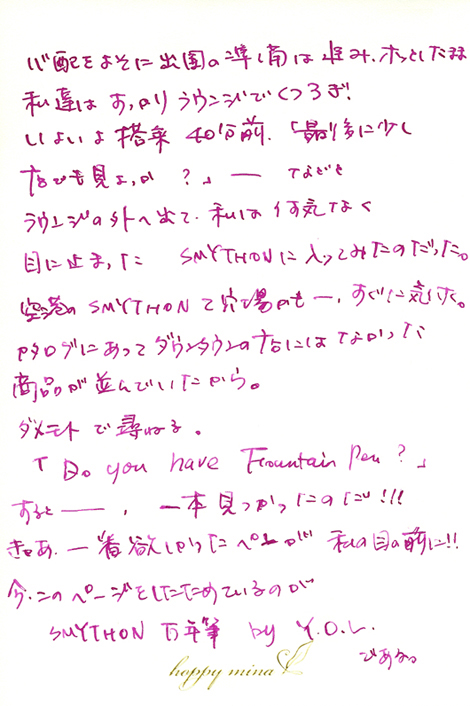 心配をよそに出国の準備は進み、ホッとしたまま
私達はすっかりラウンジでくつろぎ!
いよいよ搭乗40分前、「最後に少し
店でも見よっか?」― などと
ラウンジの外へ出て、私は何気なく
目に止まった SMYTHONに入ってみたのだった。
空港のSMYTHONて穴場かも―、すぐに気付く。
カタログにあってダウンタウンの店にはなかった
商品が並んでいたから。
ダメモトで尋ねる。
「Do you have Fountain Pen?」
すると――、一本見つかったのだ!!!
きゃあ、一番欲しかったペンが 私の目の前に!!
今、このページをしたためているのが
SMYTHON 万年筆 by Y.O.L.
である。
happy mina